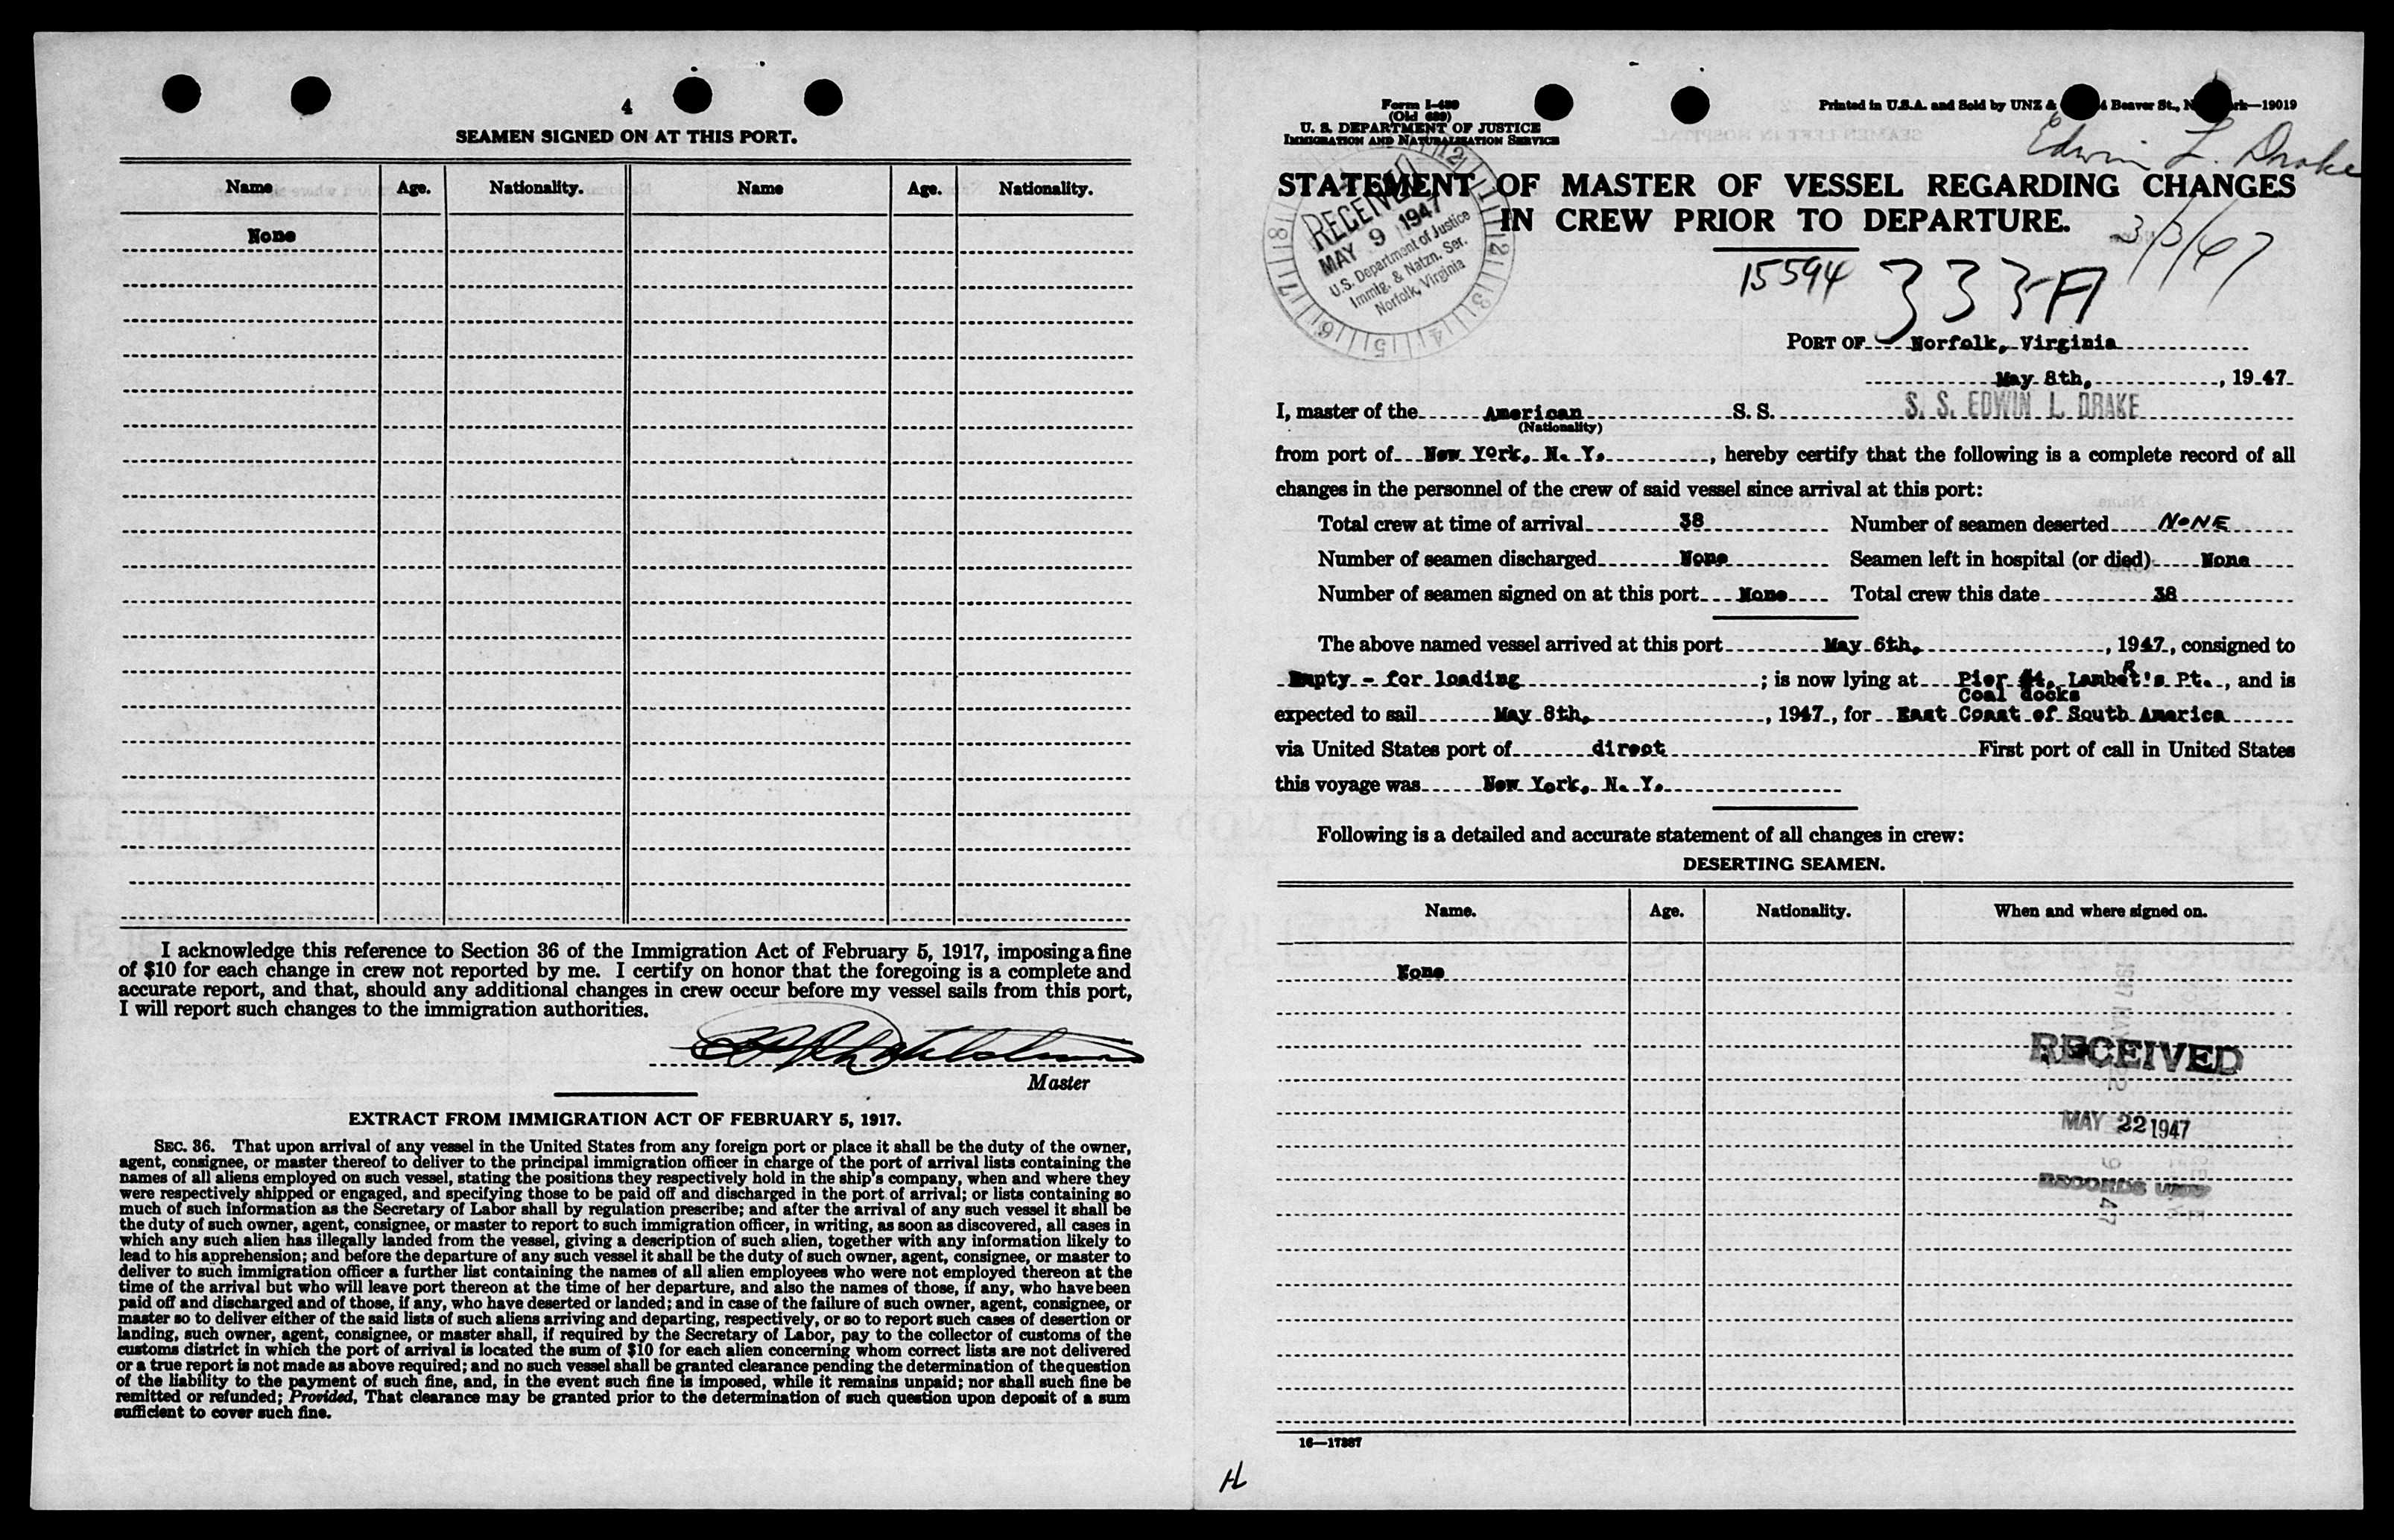 4
SEAMEN SIGNED ON AT THIS PORT.
Name Age. Nationality. Name Age. Nationality.
None
I acknowledge this reference to Section 36 of the Immigration Act of February 5, 1917, imposing a fine
of $10 for each change in crew not reported by me. I certify on honor that the foregoing is a complete and
accurate report, and that, should any additional changes in crew occur before my vessel sails from this port,
I will report such changes to the immigration authorities.
Master
EXTRACT FROM IMMIGRATION ACT OF FEBRUARY 5, 1917.
SEC. 36. That upon arrival of any vessel in the United States from any foreign port or place it shall be the duty of the owner,
agent, consignee, or master thereof to deliver to the principal immigration officer in charge of the port of arrival lists containing the
names of all aliens employed on such vessel, stating the positions they respectively hold in the ship's company, when and where they
were respectively shipped or engaged, and specifying those to be paid off and discharged in the port of arrival; or lists containing so
much of such information as the Secretary of Labor shall by regulation prescribe; and after the arrival of any such vessel it shall be
the duty of such owner, agent, consignee, or master to report to such immigration officer, in writing, as soon as discovered, all cases in
which any such alien has illegally landed from the vessel, giving a description of such alien, together with any information likely to
lead to his apprehension; and before the departure of any such vessel it shall be the duty of such owner, agent, consignee, or master to
deliver to such immigration officer a further list containing the names of all alien employees who were not employed thereon at the
time of the arrival but who will leave port thereon at the time of her departure, and also the names of those, if any, who have been
paid off and discharged and of those, if any, who have deserted or landed; and in case of the failure of such owner, agent, consignee, or
master so to deliver either of the said lists of such aliens arriving and departing, respectively, or so to report such cases of desertion or
landing, such owner, agent, consignee, or master shall, if required by the Secretary of Labor, pay to the collector of customs of the
customs district in which the port of arrival is located the sum of $10 for each alien concerning whom correct lists are not delivered
or a true report is not made as above required; and no such vessel shall be granted clearance pending the determination of the question
of the liability to the payment of such fine, and, in the event such fine is imposed, while it remains unpaid; nor shall such fine be
remitted or refunded; Provided, That clearance may be granted prior to the determination of such question upon deposit of a sum
sufficient to cover such fine.
Form I-489
(Old 689)
U. S. DEPARTMENT OF JUSTICE
IMMIGRATION AND NATURALIZATION SERVICE
Printed in U.S.A. and Sold by UNZ & Beaver St., 19019
Edwin L. Drake
STATEMENT OF MASTER OF VESSEL REGARDING CHANGES
IN CREW PRIOR TO DEPARTURE.
RECEIVED
MAY 9 1947
U.S. Department of Justice
Immig. & Natzn. Ser.
Norfolk, Virginia
3/3/47
15594 333A
PORT OF Norfolk, Virginia
May 8th, , 1947
I, master of the American S. S. S. S. EDWIN L. DRAKE
(Nationality)
from port of New York, N. Y. , hereby certify that the following is a complete record of all
changes in the personnel of the crew of said vessel since arrival at this port:
Total crew at time of arrival 38 Number of seamen deserted NONE
Number of seamen discharged None Seamen left in hospital (or died) None
Number of seamen signed on at this port None Total crew this date 38
The above named vessel arrived at this port May 6th, , 1947, consigned to
Empty - for loading ; is now lying at Pier #4, Lambert's Pt. , and is
Coal docks
expected to sail May 8th, , 1947, for East Coast of South America
via United States port of direct First port of call in United States
this voyage was New York, N. Y.
Following is a detailed and accurate statement of all changes in crew:
DESERTING SEAMEN.
Name. Age. Nationality. When and where signed on.
None
RECEIVED
MAY 22 1947
RECORDS UNIT
16—17387
HL